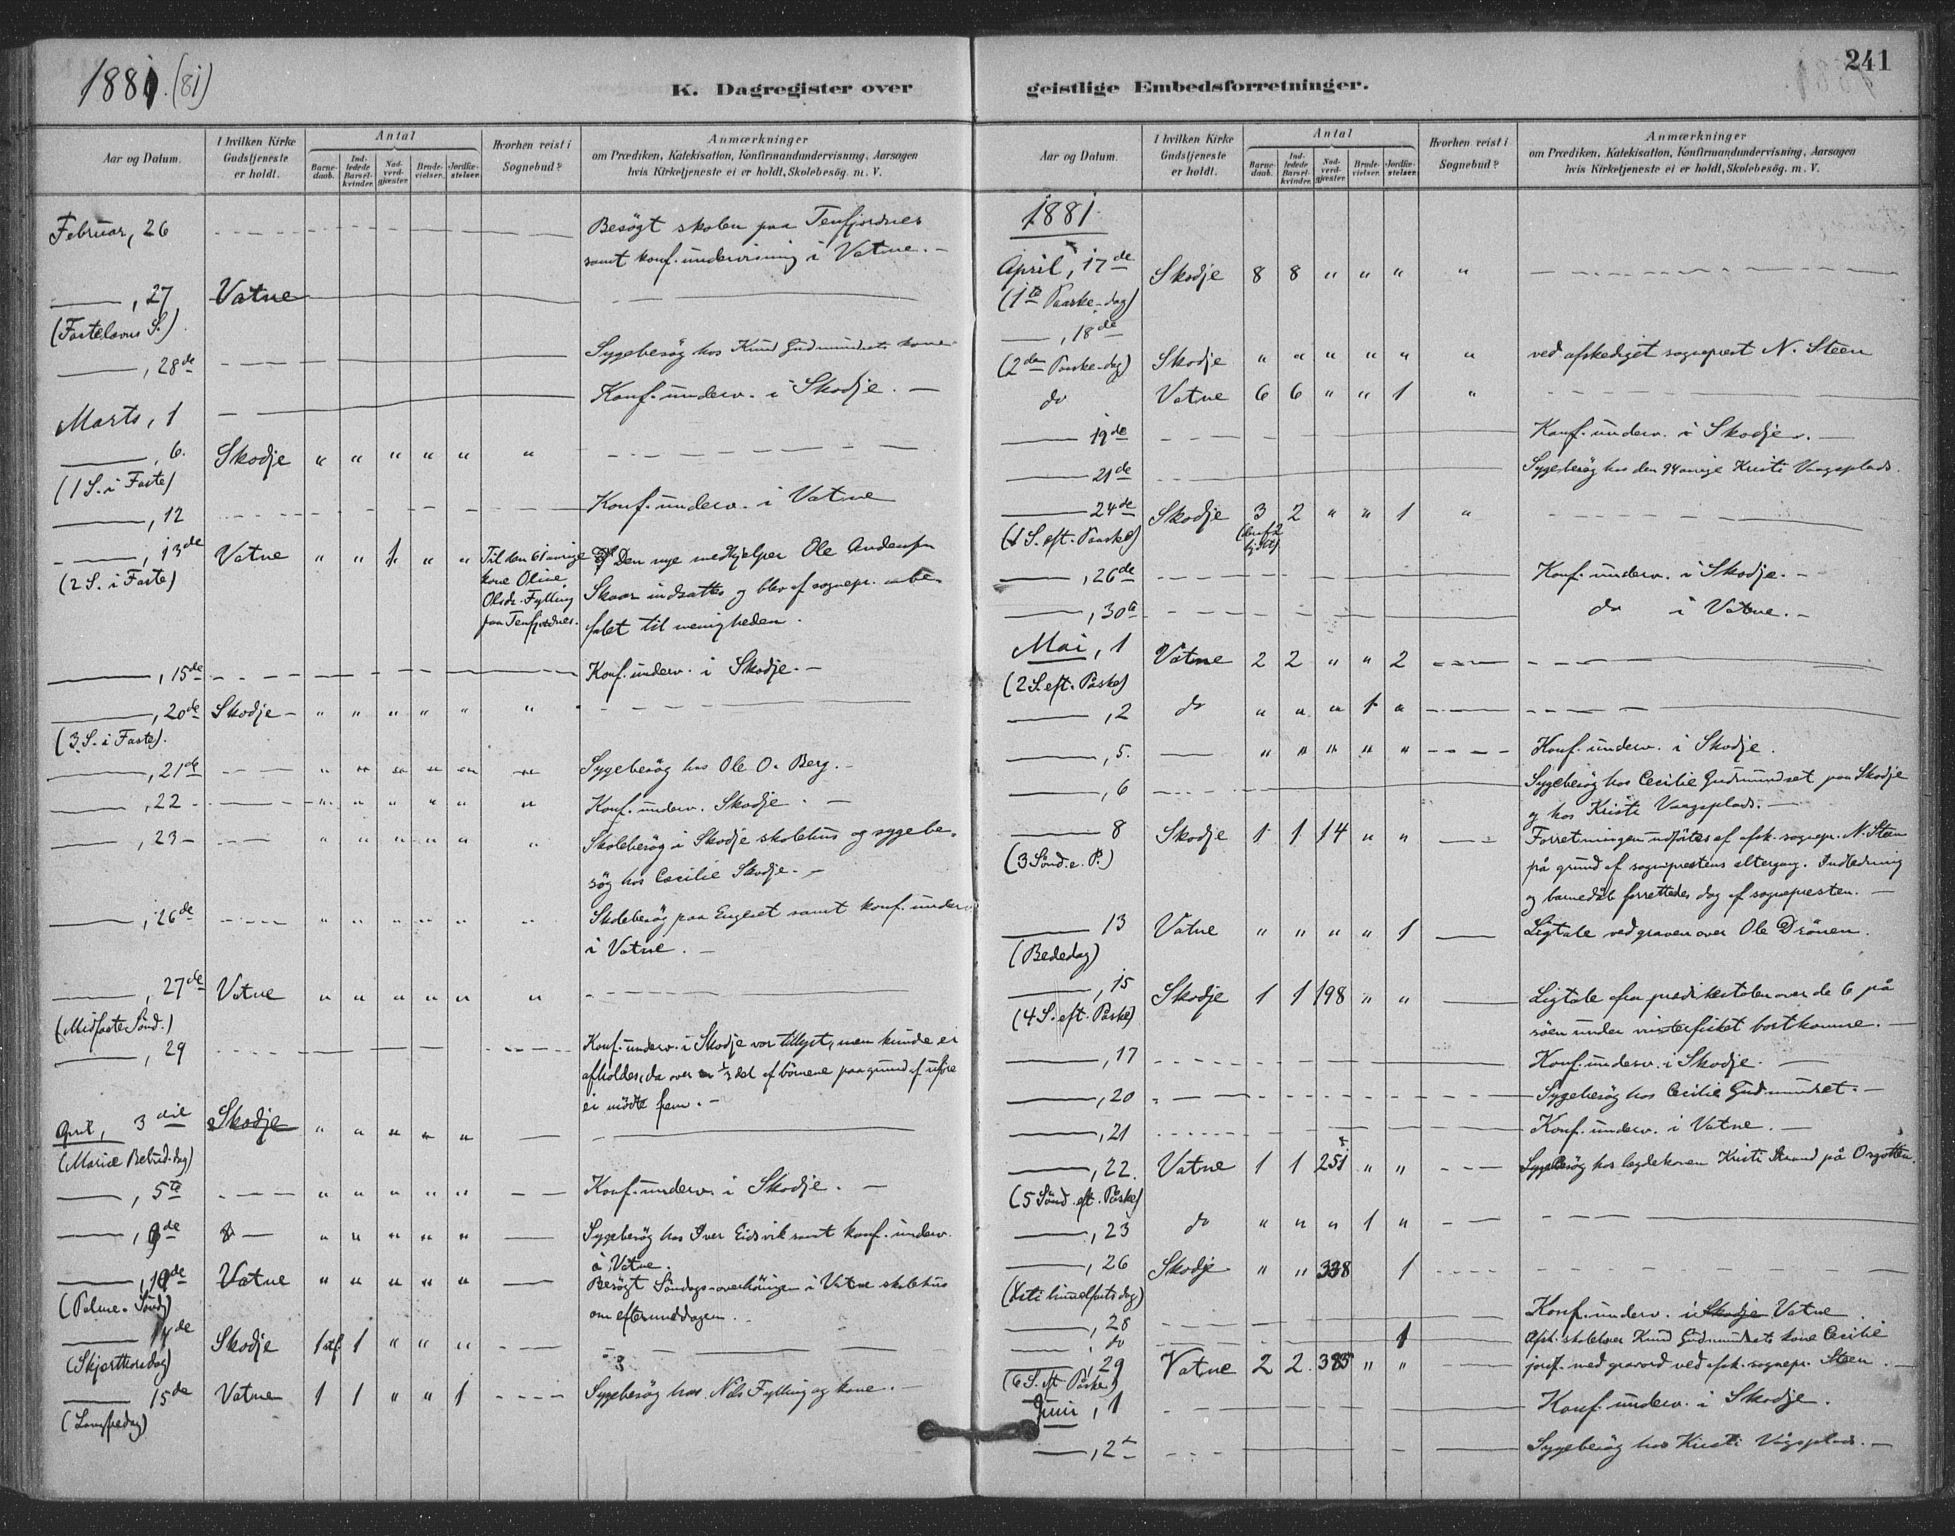 1881. (81)
K. Dagregister over
Aar og Datum.
I hvilken Kirke Gudstjeneste er holdt.
Antal
Barnedaab.
Indledede Barselkvinder.
Nadverdgjæster.
Brudevielser.
Jordfæstelser.
Hvorhen reist i Sognebud?
Anmærkninger
om Prædiken, Katekisation, Konfirmandundervisning, Aarsagen
hvis Kirketjeneste ei er holdt, Skolebesøg. m. V.
Februar, 26 Besøgt skolen paa Tenfjordnes
samt konf. undervisning i Vatne. —
——, 27 Vatne
(Fastelavns S.)
——, 28de Sygebesøg hos Knud Gudmundsets kone
Marts, 1 Konf. underv. i Skodje. —
——, 6. Skodje " " " " " "
(1 S. i Faste)
——, 12 Konf. underv. i Vatne
——, 13de Vatne " " 1 " " Til den 61 aarige Den nye medhjelper Ole Andersen
(2 S. i Faste) kone Oline Skaar indsattes og blev af sognepr. anbe-
Olsdr. Fylling falet til menigheden.
paa Tenfjordnes.
——, 15de Konf. underv. i Skodje. —
——, 20de Skodje — " " " " " "
(3. S. i Faste).
——, 21de " " " " " " Sygebesøg hos Ole O. Berg. —
——, 22 - " " " " " " Konf. underv. Skodje. —
——, 23 — " " " " " " Skolebesøg i Skodje skolehus og sygebe-
søg hos Cecilie Skodje. —
——, 26de " " " " " " Skolebesøg paa Engeset samt konf. underv.
i Vatne. —
——, 27de Vatne " " " " " "
(Midfaste Sønd.)
——, 29 Konf. underv. i Skodje var tillyst, men kunde ei
afholdes, da over 1/2 del af børnene paa grund af uføre
ei mødte frem. —
April, 3die Skodje " " " " "
(Mariæ Bebud. dag)
——, 5te " " " " " Konf. underv. i Skodje. —
——, 9de " " " " " Sygebesøg hos Iver Eidsvik samt konf. underv.
i Vatne.
——, 10de Vatne " " " " " Besøgt Søndags-overhøringen i Vatne skolehus
(Palme-Sønd.) om eftermiddagen. —
——, 14de Skodje 1 1 " " "
(Skjærthorsdag)
——, 15de Vatne 1 1 " " 1 Sygebesøg hos Nils Fylling og kone. —
(Langfredag)
241
geistlige Embedsforretninger.
Aar og Datum.
I hvilken Kirke Gudstjeneste er holdt.
Antal
Barnedaab.
Indledede Barselkvinder.
Nadverdgjæster.
Brudevielser.
Jordfæstelser.
Hvorhen reist i Sognebud?
Anmærkninger
om Prædiken, Katekisation, Konfirmandundervisning, Aarsagen
hvis Kirketjeneste ei er holdt, Skolebesøg. m. V.
1881.
April, 17de Skodje 8 8 " " " "
(1te Paaske-dag)
——, 18de
(2den Paaske-dag) Skodje " " " " " " ved afskediget sogneprest N. Steen
do Vatne 6 6 " " 1 "
—— 19de Konf. underv. i Skodje. —
—— 21de Sygebesøg hos den 94 aarige Kristi Vaagsplads.
—— 24de Skodje 3 2 " " 1 "
(1 S. eft. Paaske)
——, 26de Konf. underv. i Skodje. —
——, 30te do i Vatne. —
Mai, 1 Vatne 2 2 " " 2
(2 S. eft. Paaske)
——, 2 do " " " 1 "
——, 5. " " " " " Konf. underv. i Skodje.
——, 6 Sygebesøg hos Cecilie Gudmundset paa Skodje
og hos Kristi Vaagsplads. —
—— 8 Skodje 1 1 14 " " Forretningen udførtes af afsk. sognepr. N. Steen
(3 Sønd. e. P.) på grund af sogneprestens altergang. Indledning
og barnedåb forrettedes dog af sognepresten. —
—— 13 Vatne " " " " 1 Ligtale ved graven over Ole Drönen.
(Bededag)
——, 15 Skodje 1 1 198 " " Ligtale fra prædikestolen over de 6 på
(4 S. eft. Påske) søen under vinterfisket bortkomne. —
——, 17 Konf. underv. i Skodje. —
——, 20 Sygebesøg hos Cecilie Gudmundset. —
——, 21 Konf. underv. i Vatne. —
——, 22. Vatne 1 1 251 " " Sygebesøg hos lægdekonen Kristi Strand på
(5 Sønd. eft. Påske)
——, 23 do " " " 1 "
——, 26 Skodje " " 338 1
(Kristi himmelfartsdag)
——, 28 Konf. underv. i Skodje Vatne
——, do 1 Afsk. skolelærer Knud Gudmundsets kone Cecilie
——, 29 Vatne 2 2 385 " " jordf. med gravord ved afsk. sognepr. Steen. —
(6 S. eft. Påske)
Juni, 1 Konf. underv. i Skodje.
——, 2 Sygebesøg hos Kristi Vågsplads. —